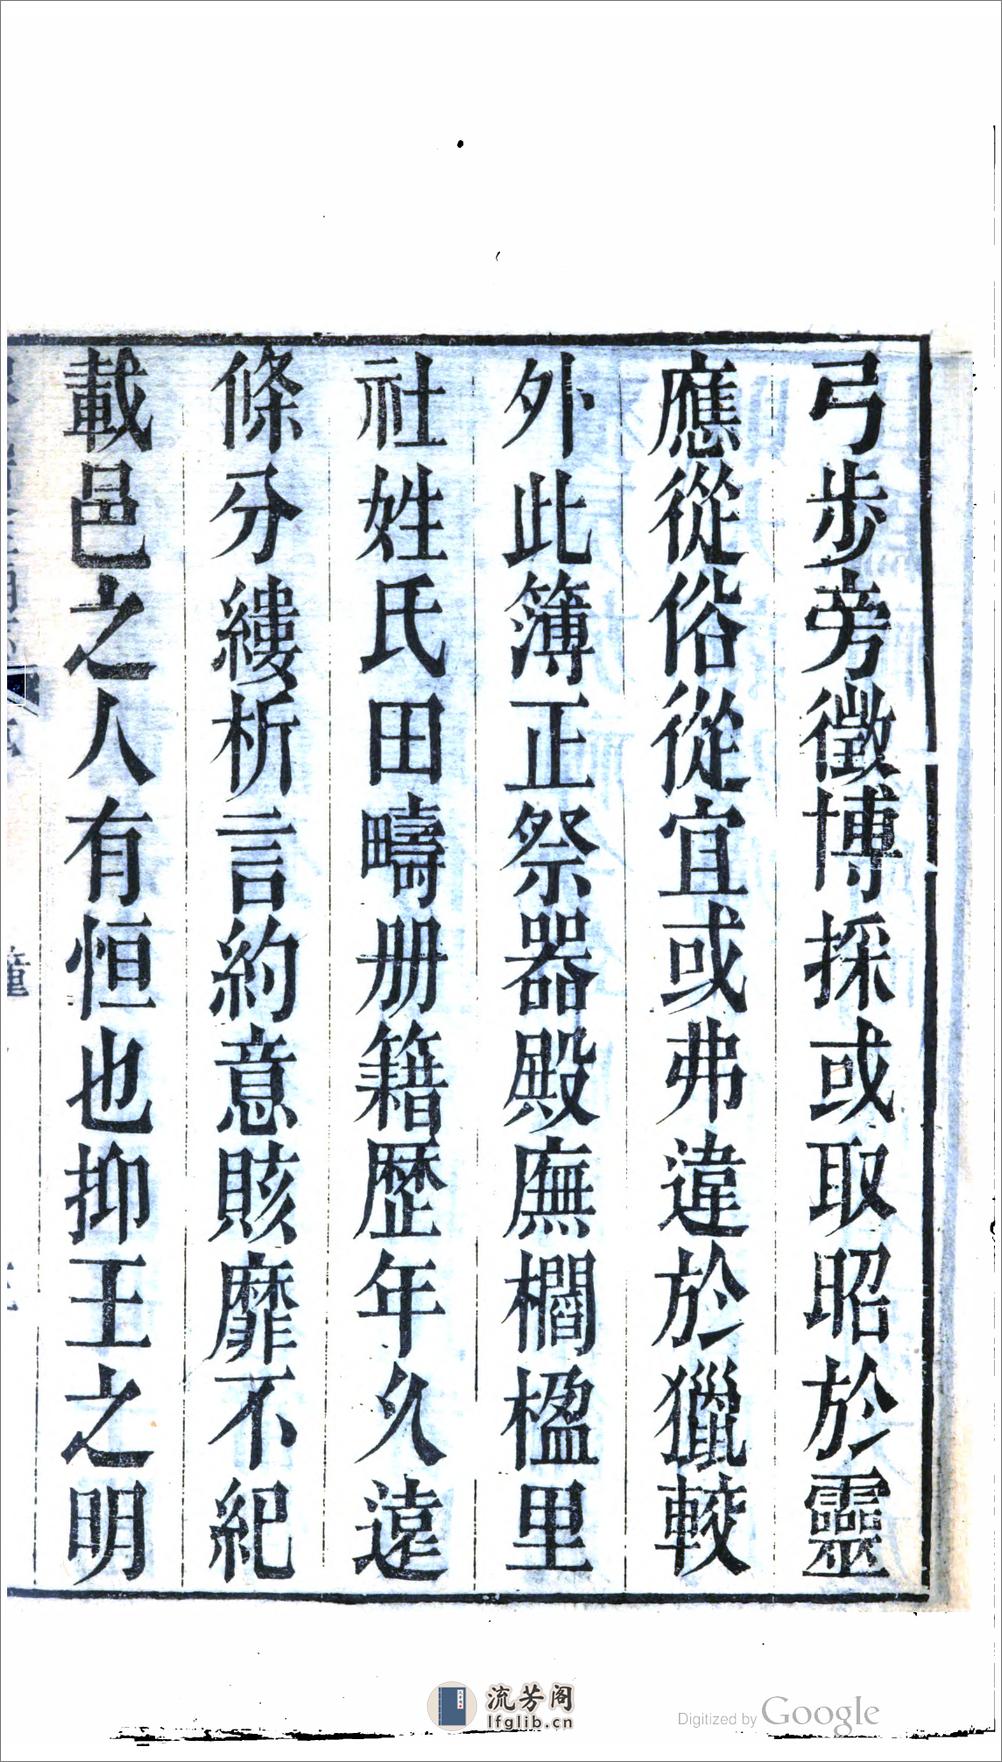 弓步旁徵博採或取昭於靈
應從俗從宜或弗違於獵較
外此簿正祭器殿廡欄楹里
社姓氏田疇册籍歷年久遠
條分縷析言約意賅靡不紀
載邑之人有恒也抑王之明
流芳阁
lfglib.cn
Digitized by Google